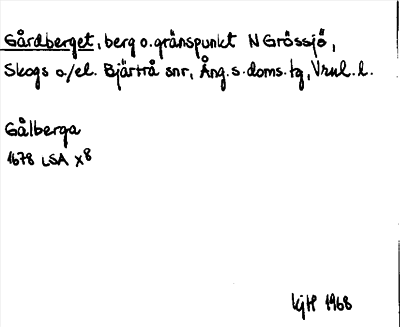 Gårdberget, berg o. gränspunkt N Grössjö,
Skogs o/el. Bjärtrå snr, Ång. s. doms. tg, Vrnl. l.
Gålberga
1678 LSA X8
KjH 1968